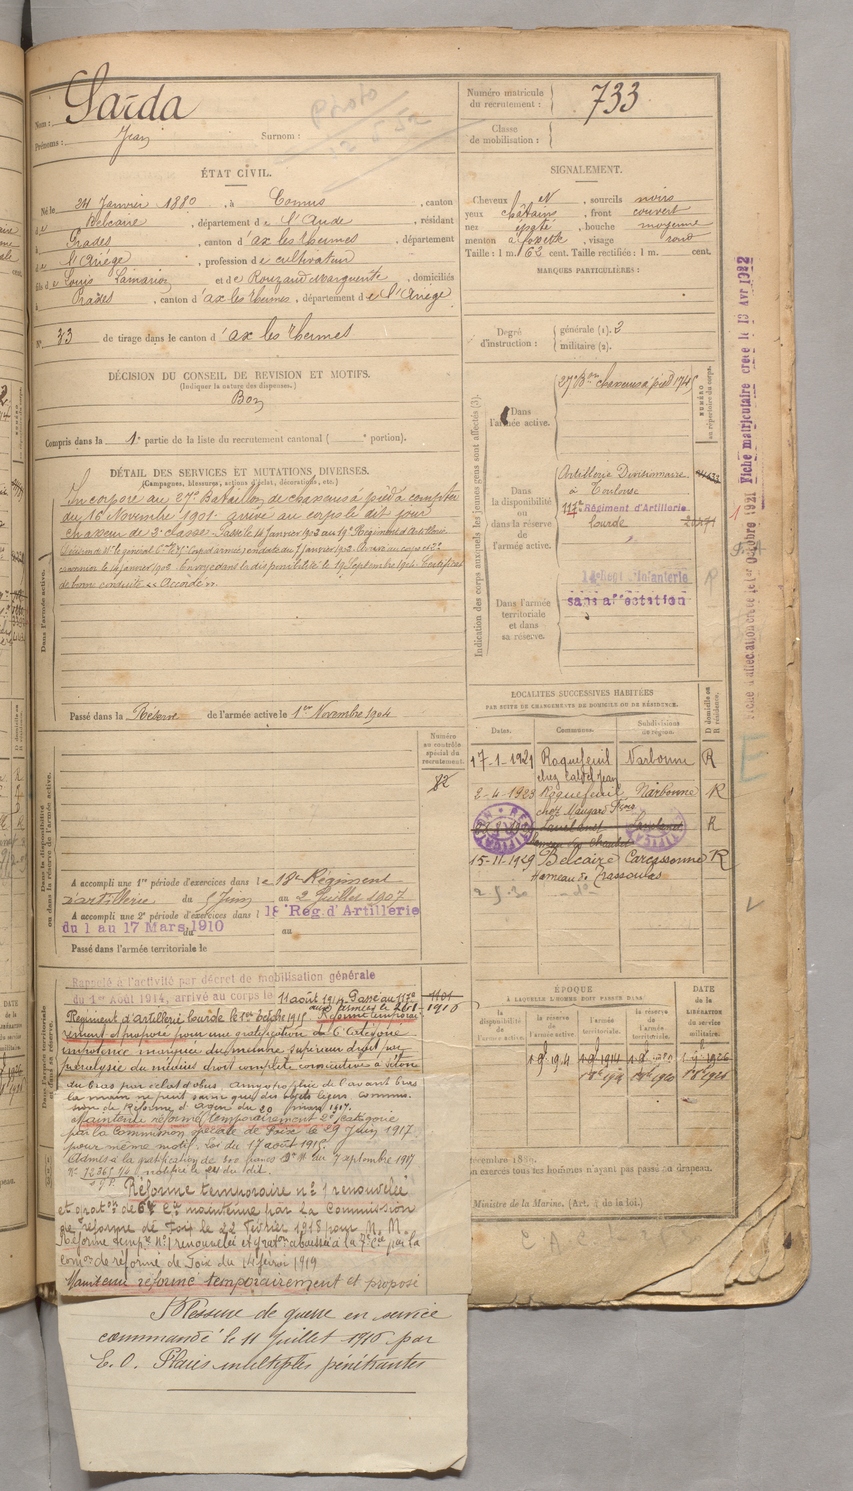 Nom : Sarda
Prénoms : Jean Surnom :
Numéro matricule du recrutement : 733
Classe de mobilisation :
ÉTAT CIVIL.
Né le 24 Janvier 1880, à Comus, canton
de Belcaire, département de l'Aude, résidant
à Prades, canton d'ax les thermes, département
de l'Ariège, profession de cultivateur
fils de Louis Lamarion et de Rouzaud Marguerite, domiciliés
à Prades, canton d'ax les thermes, département de l'Ariège
N° 33 de tirage dans le canton d'ax les thermes
DÉCISION DU CONSEIL DE REVISION ET MOTIFS.
(Indiquer la nature des dispenses.)
Bon
Compris dans la 1e partie de la liste du recrutement cantonal ( portion).
SIGNALEMENT.
Cheveux et, sourcils noirs
yeux châtains, front couvert
nez épaté, bouche moyenne
menton à fossette, visage rond
Taille : 1 m. 62 cent. Taille rectifiée : 1 m. cent.
MARQUES PARTICULIÈRES :
Degré d'instruction : générale (1). 3
militaire (2).
DÉTAIL DES SERVICES ET MUTATIONS DIVERSES.
(Campagnes, blessures, actions d'éclat, décorations, etc.)
Incorporé au 27e Bataillon de chasseurs à pied à compter
du 16 Novembre 1901. arrivé au corps le dit jour
chasseur de 2e classe. Passé le 14 Janvier 1902 au 19e Régiment d'Artillerie
canonnier le 14 janvier 1902. Envoyé dans la disponibilité le 19 Septembre 1904. Certificat
de bonne conduite "Accordé".
Dans l'armée active.
Passé dans la Réserve de l'armée active le 1er Novembre 1904
Indication des corps auxquels les jeunes gens sont affectés (3).
NUMÉRO au répertoire du corps.
Dans l'armée active.
27e Bon chasseurs à pied 1745
Dans la disponibilité ou dans la réserve de l'armée active.
Artillerie Divisionnaire
à Toulouse
117e Régiment d'Artillerie
lourde
Dans l'armée territoriale et dans sa réserve.
d'Infanterie
sans affectation
Fiche matriculaire créée le 19 Avr 1922
Fiche d'affectation créée le 1er Octobre 1921
LOCALITÉS SUCCESSIVES HABITÉES
PAR SUITE DE CHANGEMENTS DE DOMICILE OU DE RÉSIDENCE.
Dates. Communes. Subdivisions de région. D domicile ou R résidence.
17-1-1921 Roquefeuil Narbonne R
chez Jean
2-4-1923 Roquefeuil Narbonne R
chez Maugard Frères
RECTIFICATION R
15-11-1929 Belcaire Carcassonne R
Hameau de Trassoulas
2 5 30 -do-
Numéro au contrôle spécial du recrutement.
82
Dans la disponibilité ou dans la réserve de l'armée active.
A accompli une 1re période d'exercices dans le 18e Régiment
d'artillerie du 5 Juin au 2 Juillet 1907
A accompli une 2e période d'exercices dans l 18 Rég. d'Artillerie
du 1 au 17 Mars 1910 au
Passé dans l'armée territoriale le
Dans l'armée territoriale et dans sa réserve.
Rappelé à l'activité par décret de mobilisation générale
du 1er Août 1914, arrivé au corps le 11 août 1914 Passé au 117e
Régiment d'artillerie lourde le 1er octobre 1915 Réformé temporai-
rement et proposé pour une gratification de 6e Catégorie
impotence marquée du membre supérieur droit par
paralysie du médius droit complète consécutive à
du bras par éclat d'obus. amyotrophie de l'avant bras
la main ne peut saisir que des objets légers. Commis-
sion de Réforme d'Agen du 20 mars 1917.
Maintenu réformé temporairement 2e catégorie
par la Commission spéciale de Foix le 29 Juin 1917
pour même motif. Loi du 17 août 1915.
Admis à la gratification de 200 francs du 7 septembre 1917
notifié le du dit.
Réforme temporaire n° 1 renouvelée
et graton de 6e Cie maintenue par la Commission
de réforme de Foix le 22 février 1918 pour M. M.
Réforme tempre N°1 renouvelée et graton abaissée à la 7e Cie par la
comon de réforme de Foix du 14 février 1919
Maintenu réformé temporairement et proposé
Blessure de guerre en service
commandé le 11 Juillet 1916 par
E. O. Plaies multiples pénétrantes
ÉPOQUE
À LAQUELLE L'HOMME DOIT PASSER DANS
DATE de la LIBÉRATION du service militaire.
la disponibilité de l'armée active. la réserve de l'armée active. l'armée territoriale. la réserve de l'armée territoriale.
décembre 1889.
en exercés tous les hommes n'ayant pas passé au drapeau.
Ministre de la Marine. (Art. 4 de la loi.)